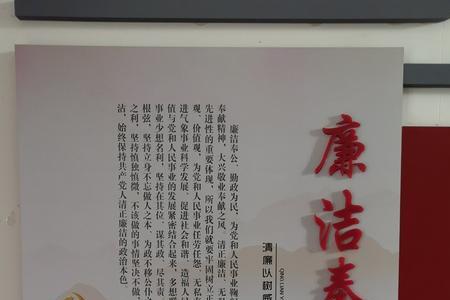 廉洁奉
清廉以树
QING LIAN Y
廉洁奉公、勤政为民,为党和人民事业鞠
奉献精神,大兴敬业奉献之风。清正廉洁、无
先进性的重要体现,所以我们就要牢固树立正
观、价值观,为党和人民事业任劳任怨、无私
进气象事业科学发展、促进社会和谐、造福人
值与党和人民事业的发展紧密结合起来,多想
事业少想名利,坚持在其位、谋其政、尽其责
根弦,坚持立身不忘做人之本、为政不移公仆
之利,坚持慎独慎微,不该做的事情坚决不做
沾,始终保持共产党人清正廉洁的政治本色。